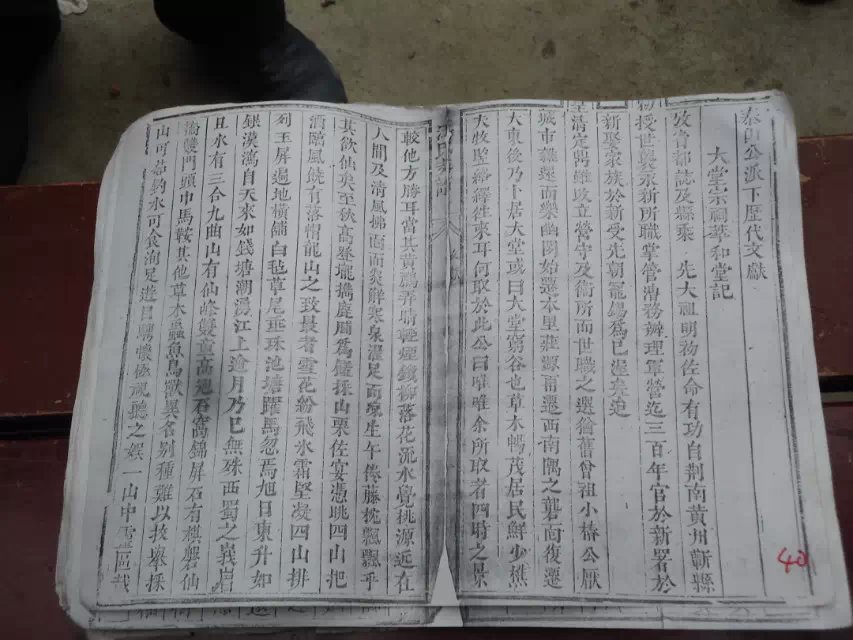 泰山公派下歷代文獻
大堂宗祠萃和堂記
攷省郡誌及縣乘 先大祖明初佐命有功自荆南黄州蘄縣
初授世襲永新所職掌管漕務辦理軍營迄三百年官於新署於
新娶家族於新受先朝寵錫爲已渥矣迨
皇清定閑雖改立營守及衛所而世職之選曾祖小椿公厭
城市雜遝而樂幽閑始遷本里莊源甫遷西南隅之龔向復遷
大東後乃卜居大堂或曰大堂窮谷也草木暢茂居民鮮少樵
夫牧豎絡繹往來耳何取於此公曰唯唯余所取者四時之景
較他方勝耳當其黄鶯弄晴輕煙鎖柳落花流水覺桃源近在
人間及清風拂面而炎解寒泉濯足而爽生午倦藤枕飄飄乎
其飲仙矣至秋高登壠擕鹿脯爲餚採山栗佐宴憑眺四山把
酒臨風饒有落帽龍山之致最者雪花紛飛氷霜堅凝四山排
列玉屏遍地橫舖白氊草尾垂珠池塘躍馬忽焉旭日東升如
銀漢瀉自天來如錢塘潮漫江上逾月乃已無殊西蜀之峩眉
且水有三合九曲山有仙峰雙童高翅石窩錦屏石有棋磐仙
橋雙門頭中馬鞍其他草木蟲魚鳥獸異名别種難以枚舉採
山可茹釣水可食洵足遊目騁懷極視聽之娱一山中靈區哉
40